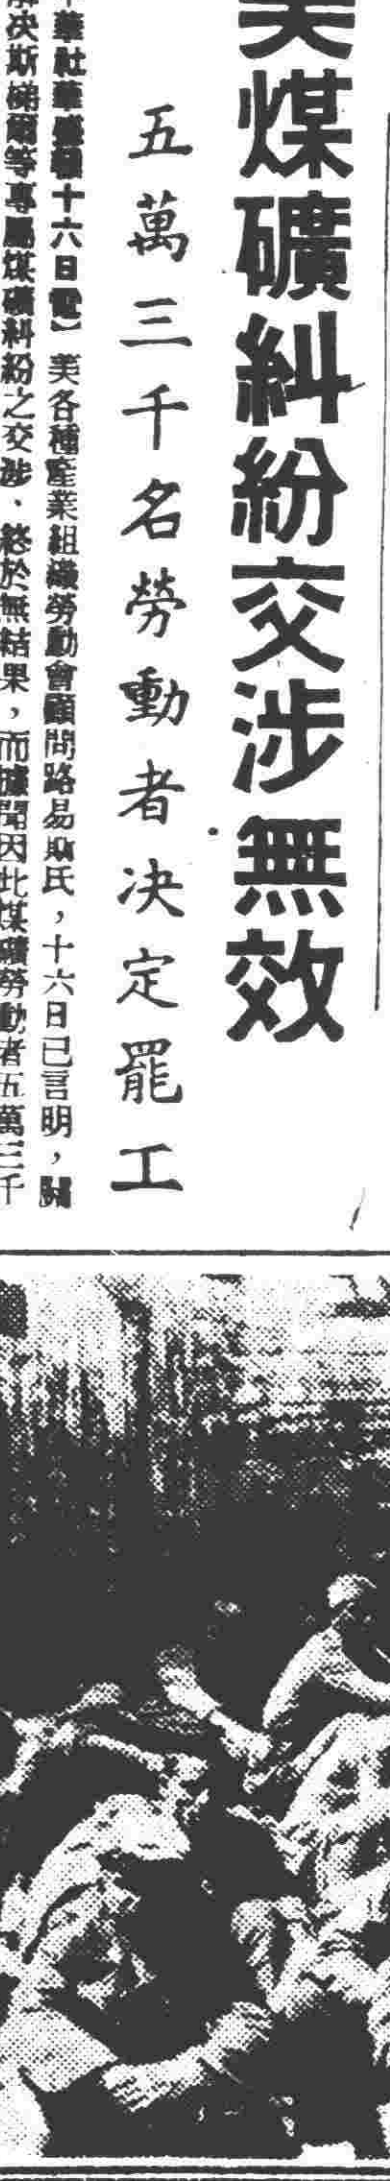 美煤礦糾紛交涉無效
五萬三千名勞動者决定罷工
華社華盛頓十六日電）美各種產業組織勞動會顧問路易斯氏，十六日已言明，關
解决斯梯爾等專屬煤礦糾紛之交涉、終於無結果，而據聞因此煤礦勞動者五萬三千